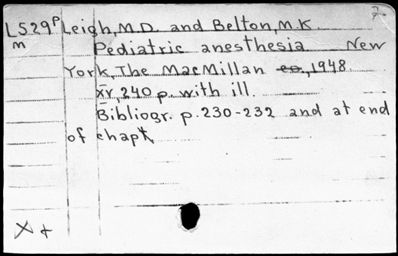 L529P Leigh, M.D. and Belton, M.K.
m Pediatric anesthesia. New
York, The MacMillan co., 1948.
xv, 240 p. with ill.
Bibliogr. p. 230-232 and at end
of chapt.